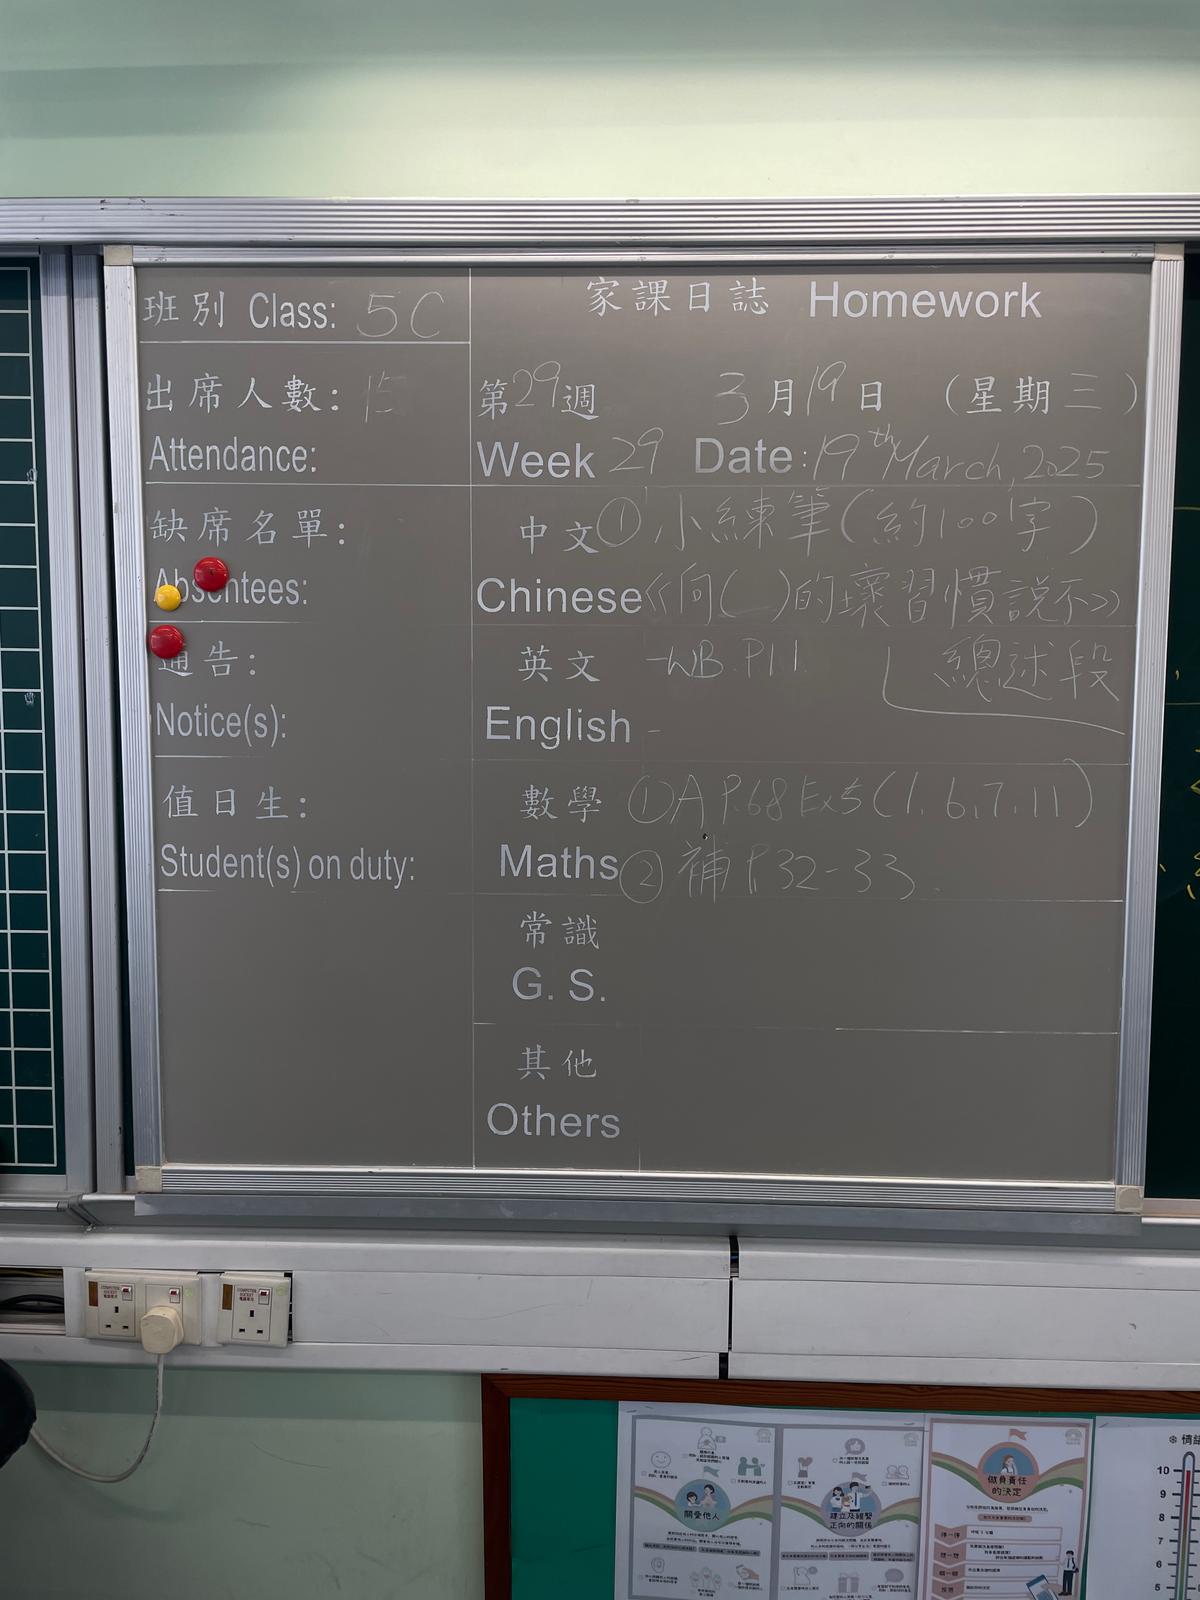 班別 Class: 5C
出席人數: 15
Attendance:
缺席名單:
Absentees:
通告:
Notice(s):
值日生:
Student(s) on duty:
家課日誌 Homework
第29週 3月19日 (星期三)
Week 29 Date: 19th March, 2025
中文 ① 小練筆(約100字)
Chinese 《向( )的壞習慣說不》
總述段
英文 -WB. P11
English -
數學 ① A P.68 Ex5 (1, 6, 7, 11)
Maths ② 補 P.32-33.
常識
G. S.
其他
Others
COMPUTER SOCKET
COMPUTER SOCKET
關愛他人
建立及維繫
正向的關係
做負責任
的決定
停一停
想一想
10
9
8
7
6
5